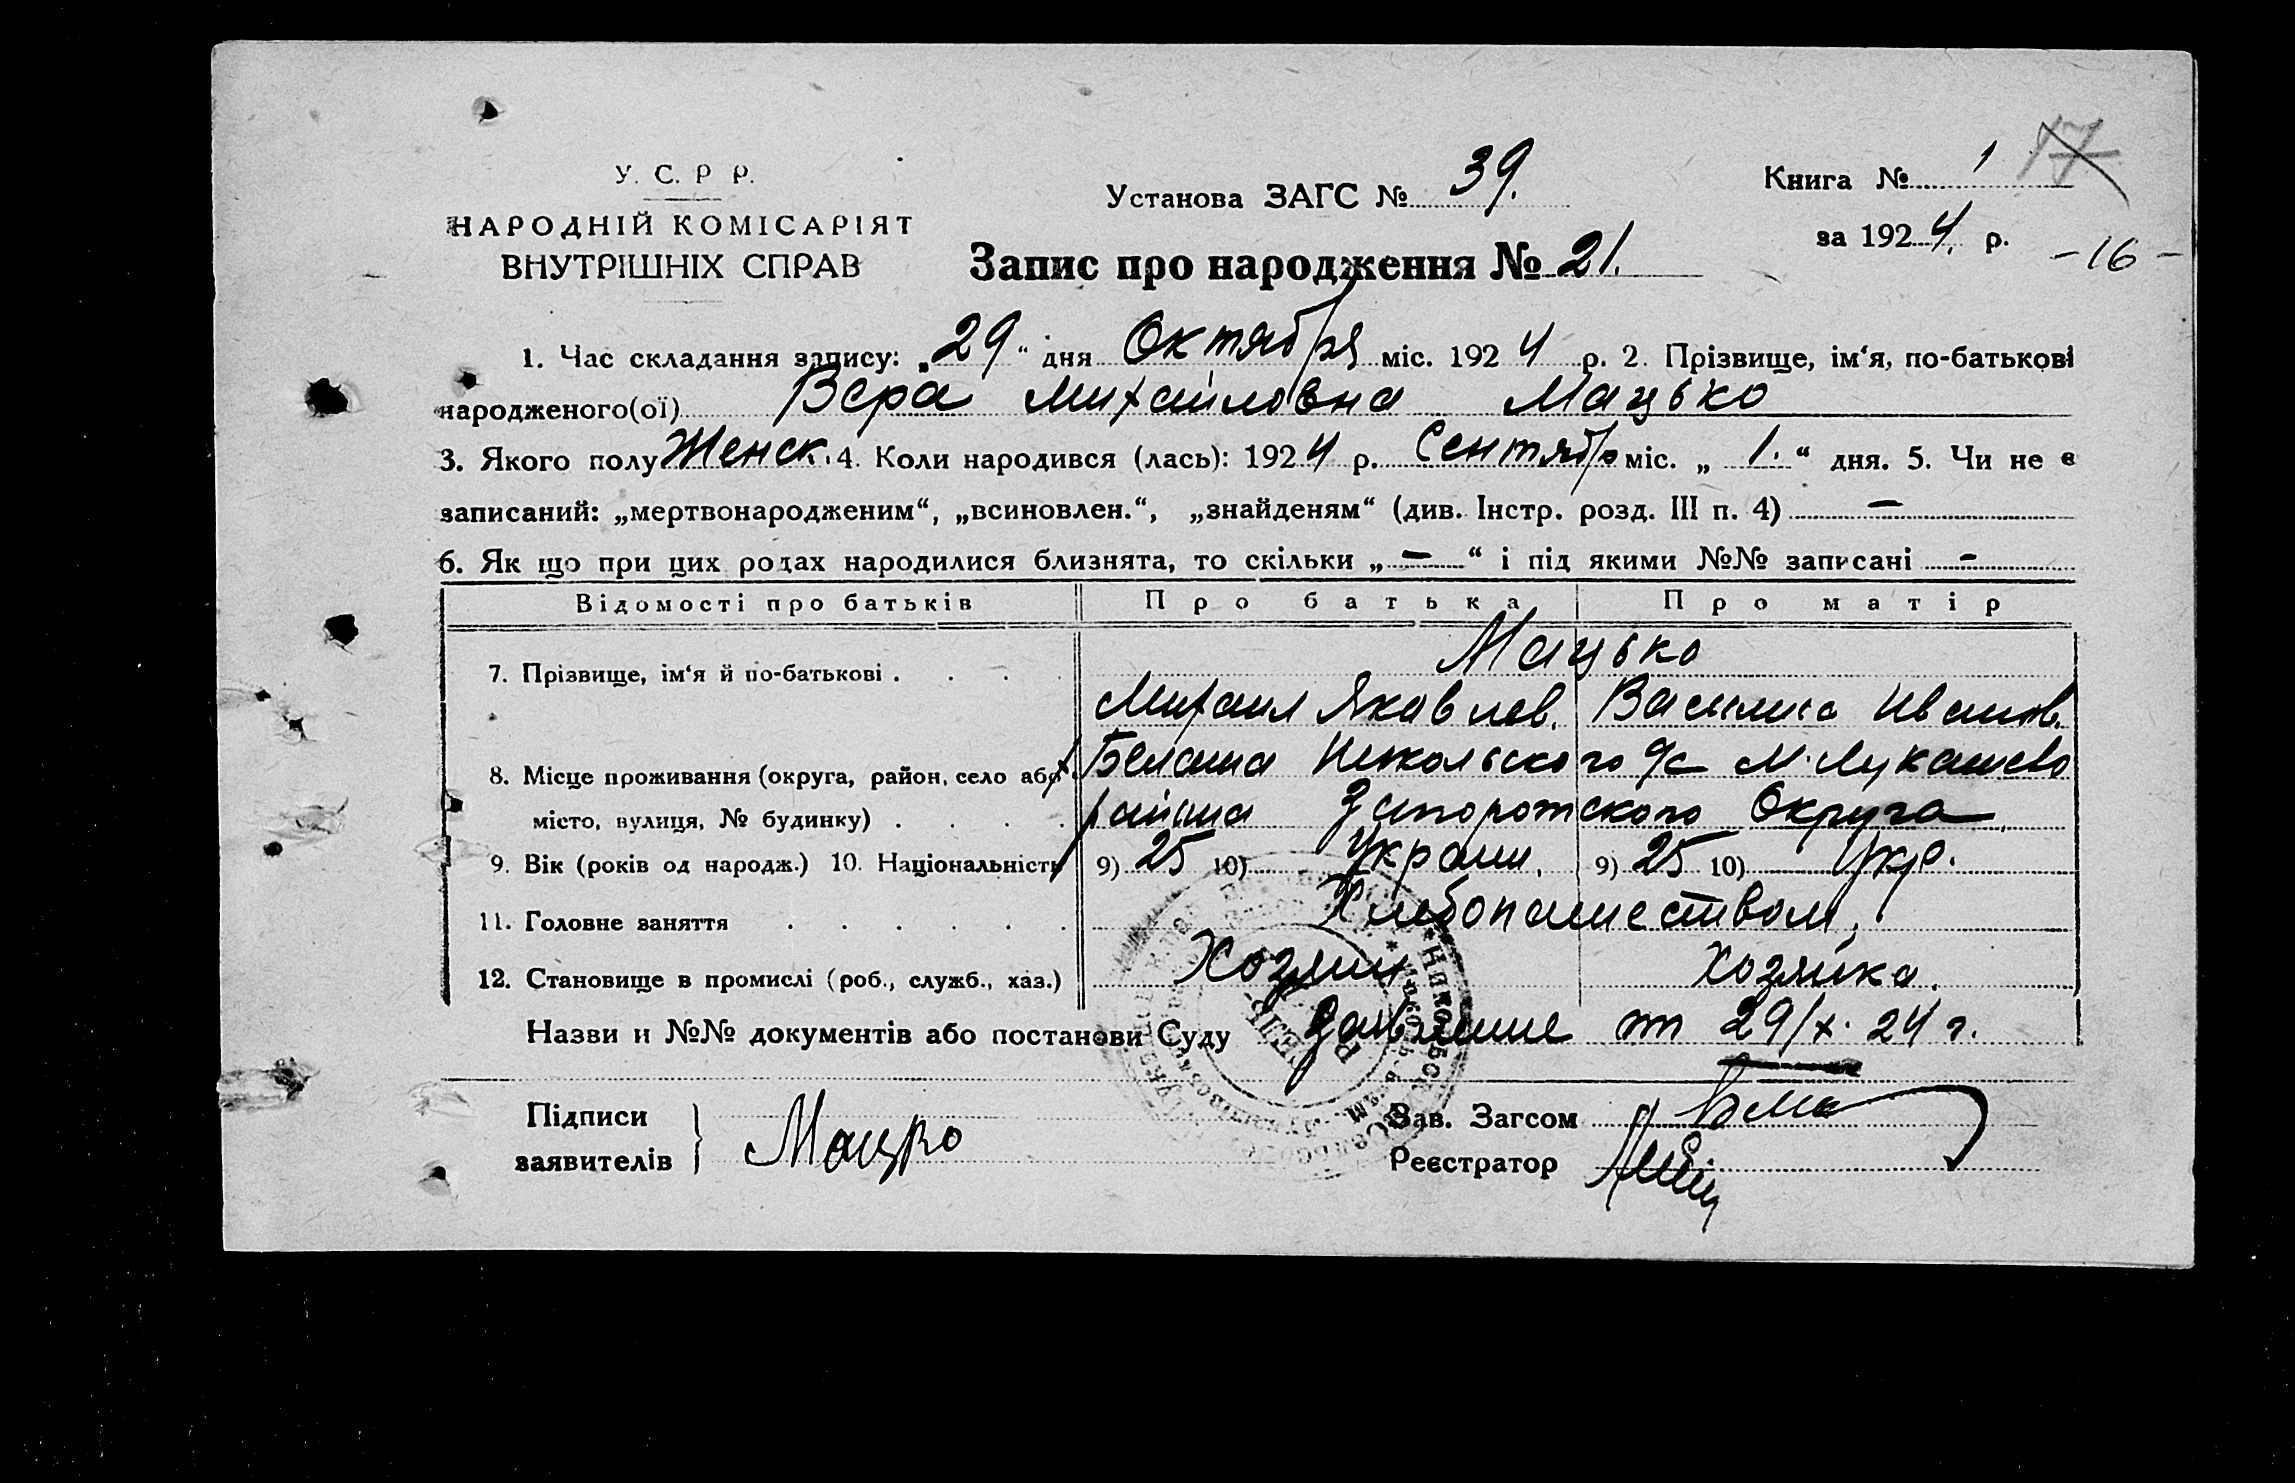 17
У. С. Р Р.
НАРОДНІЙ КОМІСАРІЯТ
ВНУТРІШНІХ СПРАВ
Установа ЗАГС № 39.
Книга № 1
за 1924 р.
- 16 -
Запис про народження № 21.
1. Час складання запису: „29“ дня Октября міс. 1924 р. 2. Прізвище, ім‘я, по-батькові
народженого(ої) Вера Михайловна Мацько
3. Якого полу Женск. 4. Коли народився (лась): 1924 р. Сентябр міс. „ 1. “ дня. 5. Чи не є
записаний: „мертвонародженим“, „всиновлен.“, „знайденям“ (див. Інстр. розд. III п. 4) —
6. Як що при цих родах народилися близнята, то скільки „—“ і під якими №№ записані -
Відомості про батьків Про батька Про матір
7. Прізвище, ім‘я й по-батькові . . . . Мацько
Михаил Яковлев. Василиса Иванов.
8. Місце проживання (округа, район, село або М. Лукашево
місто, вулиця, № будинку) . . . . района Запорожского Округа
9. Вік (років од народж.) 10. Національність 9) 25 10) Украин. 9) 25 10) Укр.
11. Головне заняття . . . . . . Хлебопашеством
12. Становище в промислі (роб., служб., хаз.) Хозяин Хозяйка.
Назви и №№ документів або постанови Суду Заявление от 29/X. 24 г.
Підписи
заявителів } Мацко
Зав. Загсом
Реєстратор